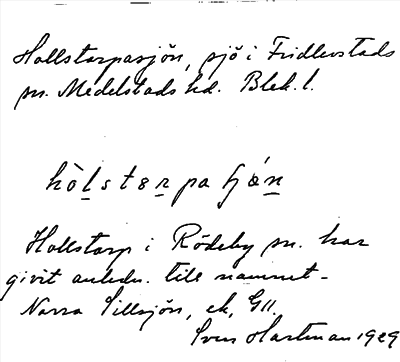 Hollstorpasjön, sjö i Fridlevstads
sn. Medelstads hd. Blek. l.
hòlstɘrpa ʃǿn
Hollstorp i Rödeby sn. har
givit anledn. till namnet –
Norra Sillsjön, ek. G11.
Sven Hartman 1929